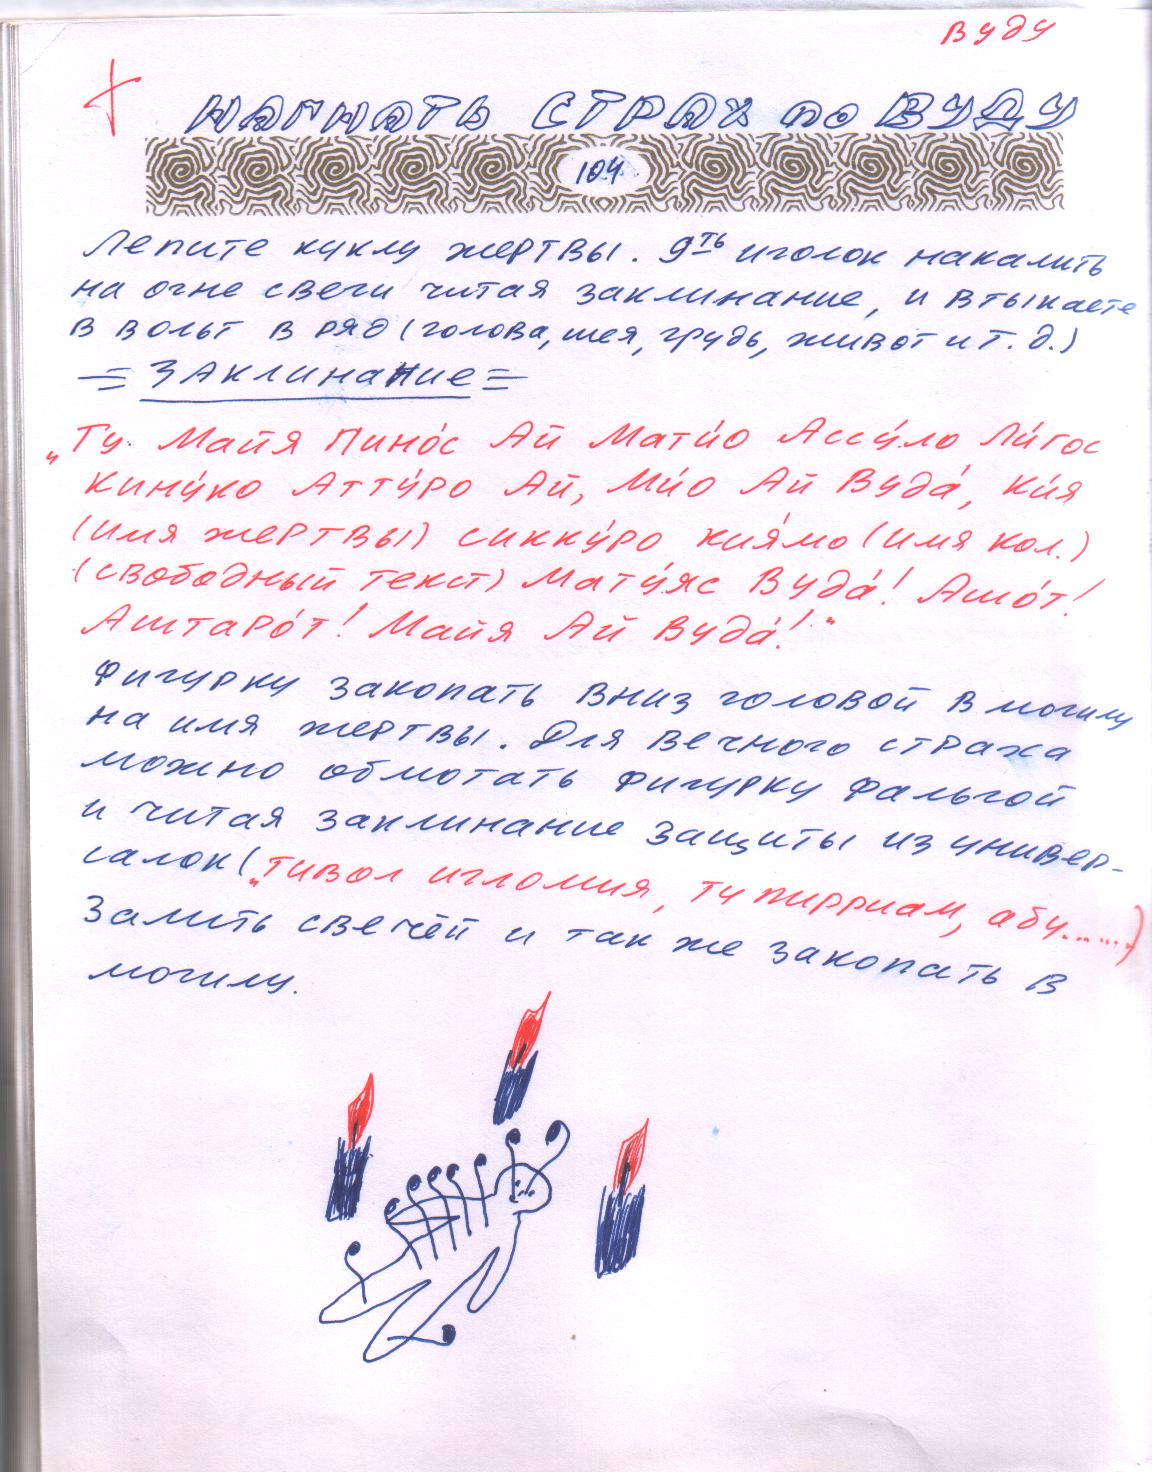 Вуду
НАГНАТЬ СТРАХ по ВУДУ
104
Лепите куклу жертвы. 9ть иголок накалить
на огне свечи читая заклинание, и втыкаете
в вольт в ряд (голова, шея, грудь, живот и т. д.)
= Заклинание =
"Ту Майя Пино́с Ай Мати́о Ассу́ло Ли́гос
Кину́ко Атту́ро Ай, Ми́о Ай Вуда́, Ки́я
(имя жертвы) сикку́ро кия́мо (имя кол.)
(свободный текст) Мату́яс Вуда́! Ашо́т!
Аштаро́т! Майя Ай Вуда́!"
Фигурку закопать вниз головой в могилу
на имя жертвы. Для вечного страха
можно обмотать фигурку фальгой
и читая заклинание защиты из универ-
салок („тивол игломия, ту пирриам, абу.......)
Залить свечёй и так же закопать в
могилу.